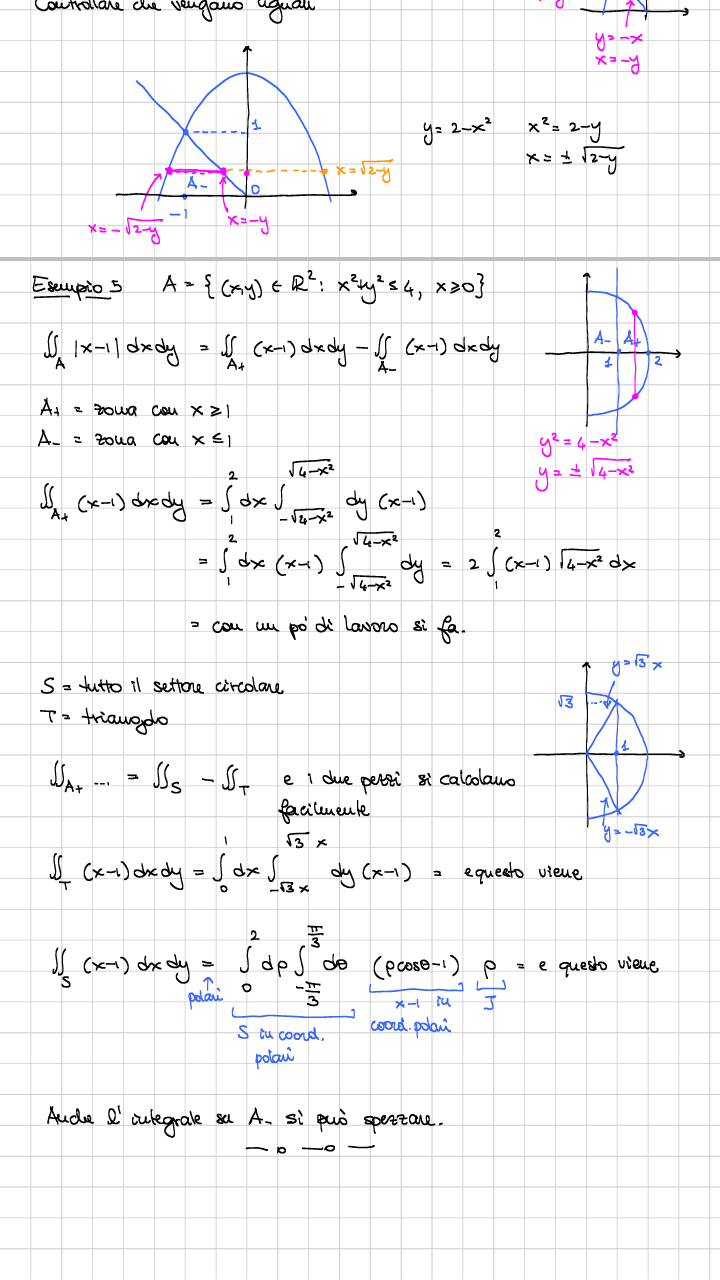 Controllare che vengano uguali
y=-x
x=-y
1
A-
0
-1
x=√(2-y)
x=-√(2-y)
x=-y
y=2-x² x²=2-y
x=±√(2-y)
Esempio 5 A = {(x,y) ∈ ℝ²: x²+y² ≤ 4, x≥0}
∬_A |x-1| dxdy = ∬_{A+} (x-1) dxdy - ∬_{A-} (x-1) dxdy
A- A+
1 2
y²=4-x²
y=±√(4-x²)
A+ = zona con x≥1
A- = zona con x≤1
∬_{A+} (x-1) dxdy = ∫_1^2 dx ∫_{-√(4-x²)}^{√(4-x²)} dy (x-1)
= ∫_1^2 dx (x-1) ∫_{-√(4-x²)}^{√(4-x²)} dy = 2 ∫_1^2 (x-1) √(4-x²) dx
= con un po' di lavoro si fa.
S = tutto il settore circolare
T = triangolo
y=√3 x
√3
1
y=-√3x
∬_{A+} ... = ∬_S - ∬_T e i due pezzi si calcolano
facilmente
∬_T (x-1) dxdy = ∫_0^1 dx ∫_{-√3 x}^{√3 x} dy (x-1) = e questo viene
∬_S (x-1) dxdy = ∫_0^2 dρ ∫_{-π/3}^{π/3} dθ (ρcosθ-1) ρ = e questo viene
polari
S in coord.
polari
x-1 in
coord. polari
J
Anche l'integrale su A- si può spezzare.
— o — o —